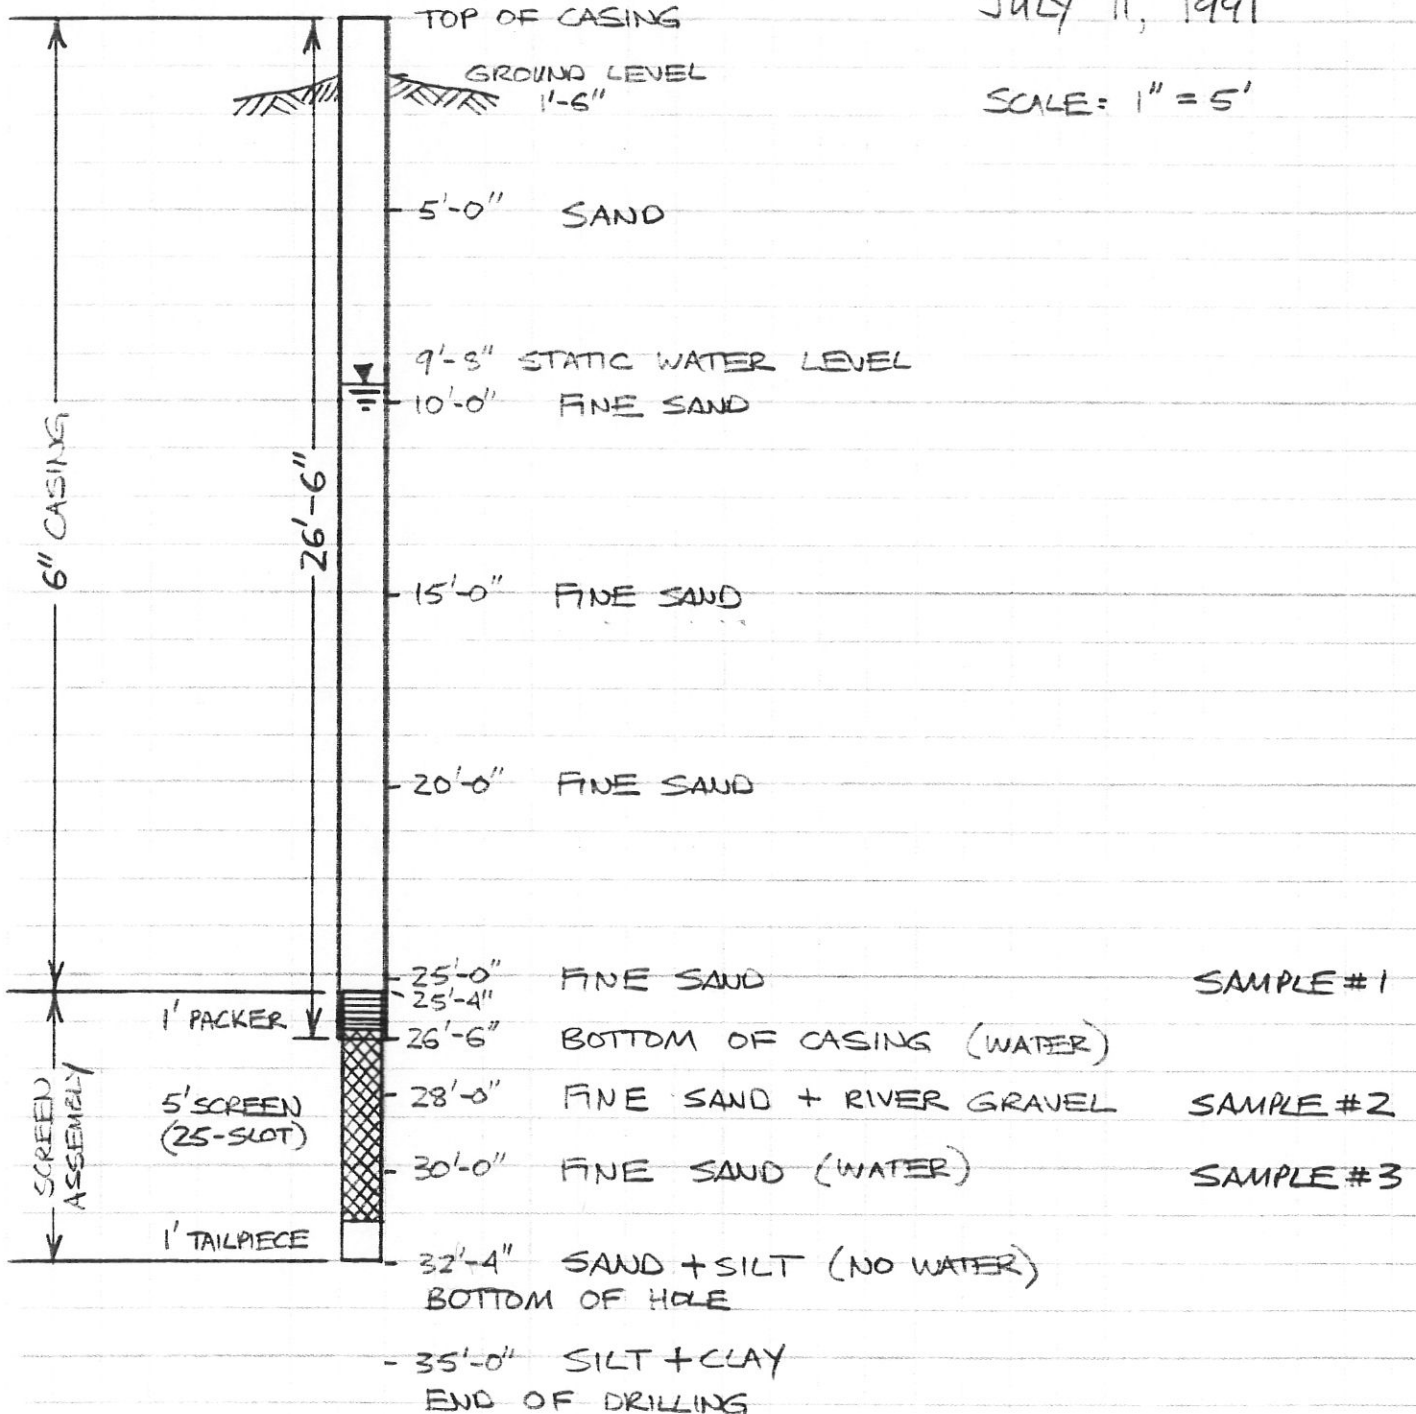 TOP OF CASING
JULY 11, 1991
GROUND LEVEL
1'-6"
SCALE: 1" = 5'
5'-0" SAND
9'-8" STATIC WATER LEVEL
10'-0" FINE SAND
6" CASING
26'-6"
15'-0" FINE SAND
20'-0" FINE SAND
25'-0" FINE SAND SAMPLE #1
25'-4"
1' PACKER
26'-6" BOTTOM OF CASING (WATER)
SCREEN
ASSEMBLY
5' SCREEN
(25-SLOT)
28'-0" FINE SAND + RIVER GRAVEL SAMPLE #2
30'-0" FINE SAND (WATER) SAMPLE #3
1' TAILPIECE
32'-4" SAND + SILT (NO WATER)
BOTTOM OF HOLE
35'-0" SILT + CLAY
END OF DRILLING